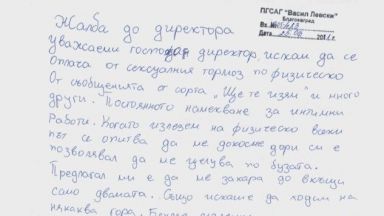 Жалба до директора
уважаеми господин директор, искам да се
оплача от сексуалния тормоз по физическо
От съобщенията от сорта „Ще те изям" и много
други. Постоянното намекване за интимни
Работи. Когато излезем на физическо всеки
път се опитва да ме докосне дори си е
позволявал да ме целува по бузата.
Предлагал ми е да ме закара до вкъщи
само двамата. Също искаше да ходим на
някаква гора.
ПГСАГ "Васил Левски"
Благоевград
Вх. №
Дата